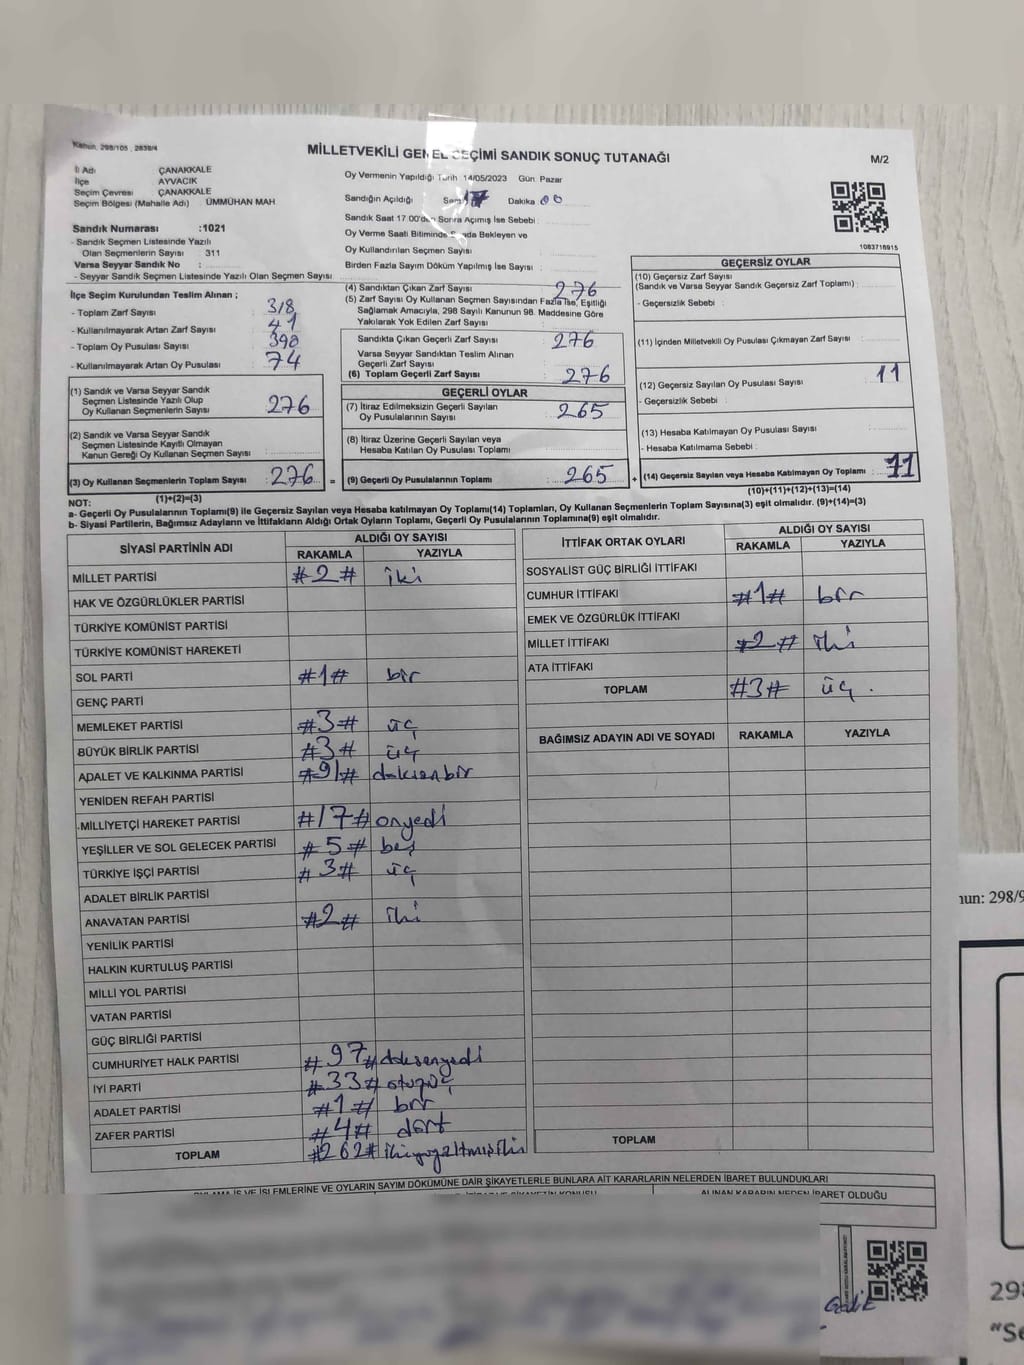 Kanun, 298/105, 2839/4
MİLLETVEKİLİ GENEL SEÇİMİ SANDIK SONUÇ TUTANAĞI
M/2
İl Adı : ÇANAKKALE
İlçe : AYVACIK
Seçim Çevresi : ÇANAKKALE
Seçim Bölgesi (Mahalle Adı) : ÜMMÜHAN MAH
Sandık Numarası :1021
- Sandık Seçmen Listesinde Yazılı
Olan Seçmenlerin Sayısı : 311
Varsa Seyyar Sandık No :
- Seyyar Sandık Seçmen Listesinde Yazılı Olan Seçmen Sayısı
Oy Vermenin Yapıldığı Tarih 14/05/2023 Gün Pazar
Sandığın Açıldığı Saat 17 Dakika 00
Sandık Saat 17.00'den Sonra Açımış İse Sebebi :
Oy Verme Saati Bitiminde Sırada Bekleyen ve
Oy Kullandırılan Seçmen Sayısı :
Birden Fazla Sayım Döküm Yapılmış İse Sayısı :
1083716915
İlçe Seçim Kurulundan Teslim Alınan ;
- Toplam Zarf Sayısı : 318
- Kullanılmayarak Artan Zarf Sayısı : 41
- Toplam Oy Pusulası Sayısı : 390
- Kullanılmayarak Artan Oy Pusulası : 74
(1) Sandık ve Varsa Seyyar Sandık
Seçmen Listesinde Yazılı Olup
Oy Kullanan Seçmenlerin Sayısı : 276
(2) Sandık ve Varsa Seyyar Sandık
Seçmen Listesinde Kayıtlı Olmayan
Kanun Gereği Oy Kullanan Seçmen Sayısı :
(3) Oy Kullanan Seçmenlerin Toplam Sayısı : 276 =
(1)+(2)=(3)
(4) Sandıktan Çıkan Zarf Sayısı : 276
(5) Zarf Sayısı Oy Kullanan Seçmen Sayısından Fazla İse, Eşitliği
Sağlamak Amacıyla, 298 Sayılı Kanunun 98. Maddesine Göre
Yakılarak Yok Edilen Zarf Sayısı :
Sandıkta Çıkan Geçerli Zarf Sayısı : 276
Varsa Seyyar Sandıktan Teslim Alınan
Geçerli Zarf Sayısı :
(6) Toplam Geçerli Zarf Sayısı : 276
GEÇERLİ OYLAR
(7) İtiraz Edilmeksizin Geçerli Sayılan
Oy Pusulalarının Sayısı : 265
(8) İtiraz Üzerine Geçerli Sayılan veya
Hesaba Katılan Oy Pusulaları Toplamı :
(9) Geçerli Oy Pusulalarının Toplamı : 265 +
GEÇERSİZ OYLAR
(10) Geçersiz Zarf Sayısı
(Sandık ve Varsa Seyyar Sandık Geçersiz Zarf Toplamı) :
- Geçersizlik Sebebi :
(11) İçinden Milletvekili Oy Pusulası Çıkmayan Zarf Sayısı :
(12) Geçersiz Sayılan Oy Pusulası Sayısı : 11
- Geçersizlik Sebebi :
(13) Hesaba Katılmayan Oy Pusulası Sayısı :
- Hesaba Katılmama Sebebi :
(14) Geçersiz Sayılan veya Hesaba Katılmayan Oy Toplamı : 11
(10)+(11)+(12)+(13)=(14)
NOT:
a- Geçerli Oy Pusulalarının Toplamı(9) ile Geçersiz Sayılan veya Hesaba katılmayan Oy Toplamı(14) Toplamları, Oy Kullanan Seçmenlerin Toplam Sayısına(3) eşit olmalıdır. (9)+(14)=(3)
b- Siyasi Partilerin, Bağımsız Adayların ve İttifakların Aldığı Ortak Oyların Toplamı, Geçerli Oy Pusulalarının Toplamına(9) eşit olmalıdır.
SİYASİ PARTİNİN ADI ALDIĞI OY SAYISI
RAKAMLA YAZIYLA
MİLLET PARTİSİ #2# iki
HAK VE ÖZGÜRLÜKLER PARTİSİ
TÜRKİYE KOMÜNİST PARTİSİ
TÜRKİYE KOMÜNİST HAREKETİ
SOL PARTİ #1# bir
GENÇ PARTİ
MEMLEKET PARTİSİ #3# üç
BÜYÜK BİRLİK PARTİSİ #3# üç
ADALET VE KALKINMA PARTİSİ #91# doksanbir
YENİDEN REFAH PARTİSİ
MİLLİYETÇİ HAREKET PARTİSİ #17# onyedi
YEŞİLLER VE SOL GELECEK PARTİSİ #5# beş
TÜRKİYE İŞÇİ PARTİSİ #3# üç
ADALET BİRLİK PARTİSİ
ANAVATAN PARTİSİ #2# iki
YENİLİK PARTİSİ
HALKIN KURTULUŞ PARTİSİ
MİLLİ YOL PARTİSİ
VATAN PARTİSİ
GÜÇ BİRLİĞİ PARTİSİ
CUMHURİYET HALK PARTİSİ #97# doksenyedi
İYİ PARTİ #33# otuzüç
ADALET PARTİSİ #1# bir
ZAFER PARTİSİ #4# dört
TOPLAM #262# ikiyüzaltmışiki
İTTİFAK ORTAK OYLARI ALDIĞI OY SAYISI
RAKAMLA YAZIYLA
SOSYALİST GÜÇ BİRLİĞİ İTTİFAKI
CUMHUR İTTİFAKI #1# bir
EMEK VE ÖZGÜRLÜK İTTİFAKI
MİLLET İTTİFAKI #2# iki
ATA İTTİFAKI
TOPLAM #3# üç.
BAĞIMSIZ ADAYIN ADI VE SOYADI RAKAMLA YAZIYLA
TOPLAM
İŞ VE İŞLEMLERİNE VE OYLARIN SAYIM DÖKÜMÜNE DAİR ŞİKAYETLERLE BUNLARA AİT KARARLARIN NELERDEN İBARET BULUNDUKLARI
ALINAN KARARIN NEDEN İBARET OLDUĞU
298/9